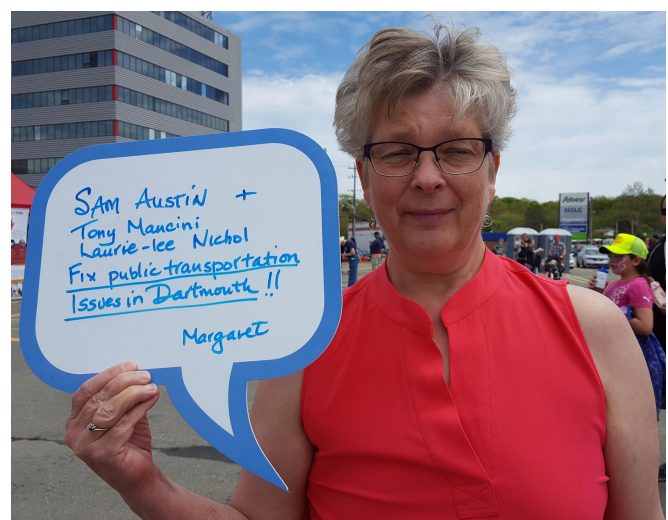 SAM AUSTIN +
Tony Mancini
Laurie-lee Nichol
Fix public transportation
Issues in Dartmouth !!
Margaret